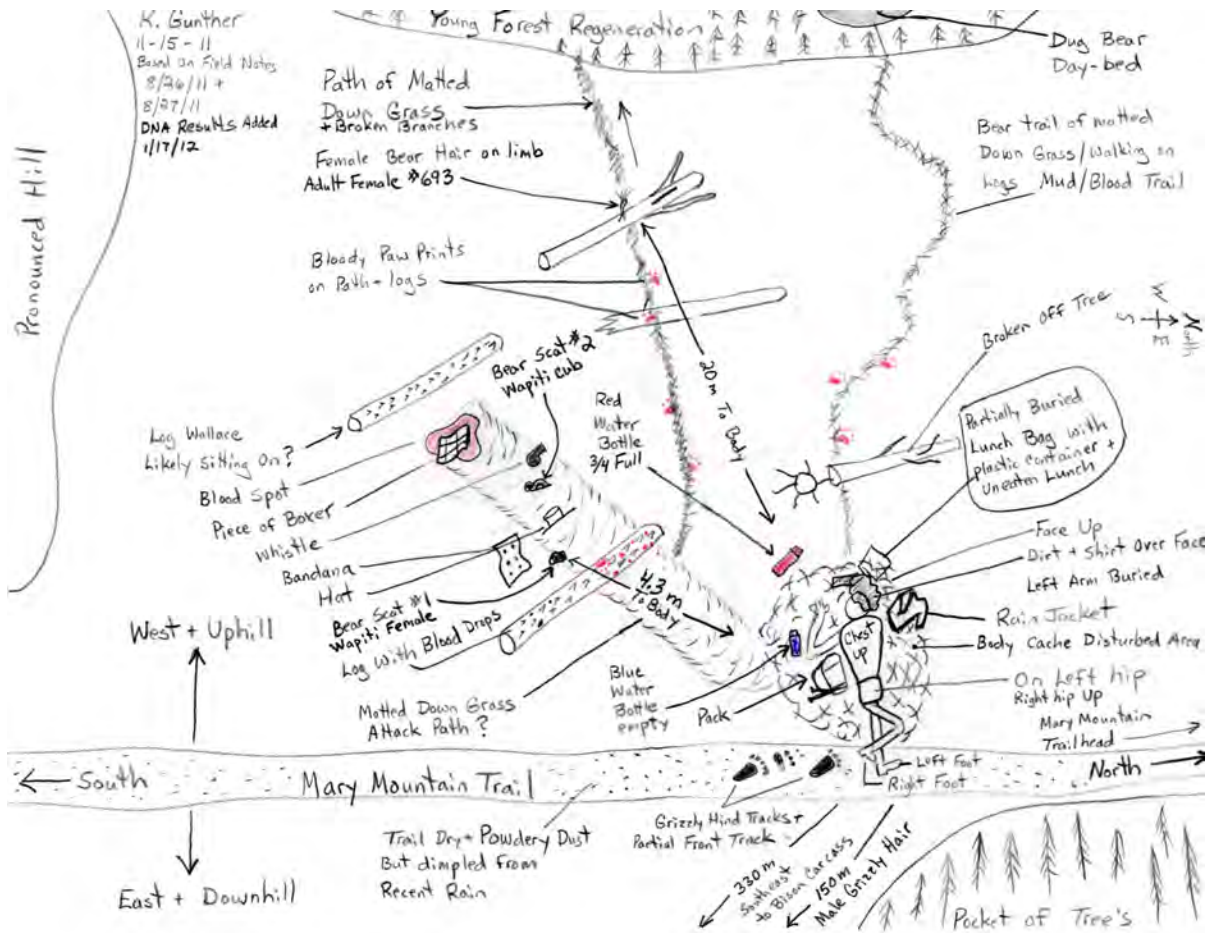 K. Gunther
11-15-11
Based on Field Notes
8/26/11 +
8/27/11
DNA Results Added
1/17/12
Young Forest Regeneration
Dug Bear
Day-bed
Pronounced Hill
Path of Matted
Down Grass
+ Broken Branches
Female Bear Hair on limb
Adult Female #693
Bear trail of matted
Down Grass/Walking on
Logs Mud/Blood Trail
Bloody Paw Prints
on Path + logs
W
S
North
E
Broken Off Tree
Bear Scat #2
Wapiti Cub
20m To Body
Red
Water
Bottle
3/4 Full
Partially Buried
Lunch Bag with
plastic container +
Uneaten Lunch
Log Wallace
Likely Sitting On?
Blood Spot
Piece of Boxer
Whistle
Bandana
Hat
Bear Scat #1
Wapiti Female
Log With Blood Drops
4.3 m
To Body
Face Up
Dirt + Shirt Over Face
Left Arm Buried
Rain Jacket
Body Cache Disturbed Area
Chest
Up
On Left hip
Right hip Up
West + Uphill
Matted Down Grass
Attack Path ?
Blue
Water
Bottle
empty
Pack
Mary Mountain
Trailhead
South
Mary Mountain Trail
Left Foot
Right Foot
North
Trail Dry + Powdery Dust
But dimpled from
Recent Rain
Grizzly Hind Tracks +
Partial Front Track
East + Downhill
330 m
Southeast
to Bison Carcass
150 m
Male Grizzly Hair
Pocket of Tree's